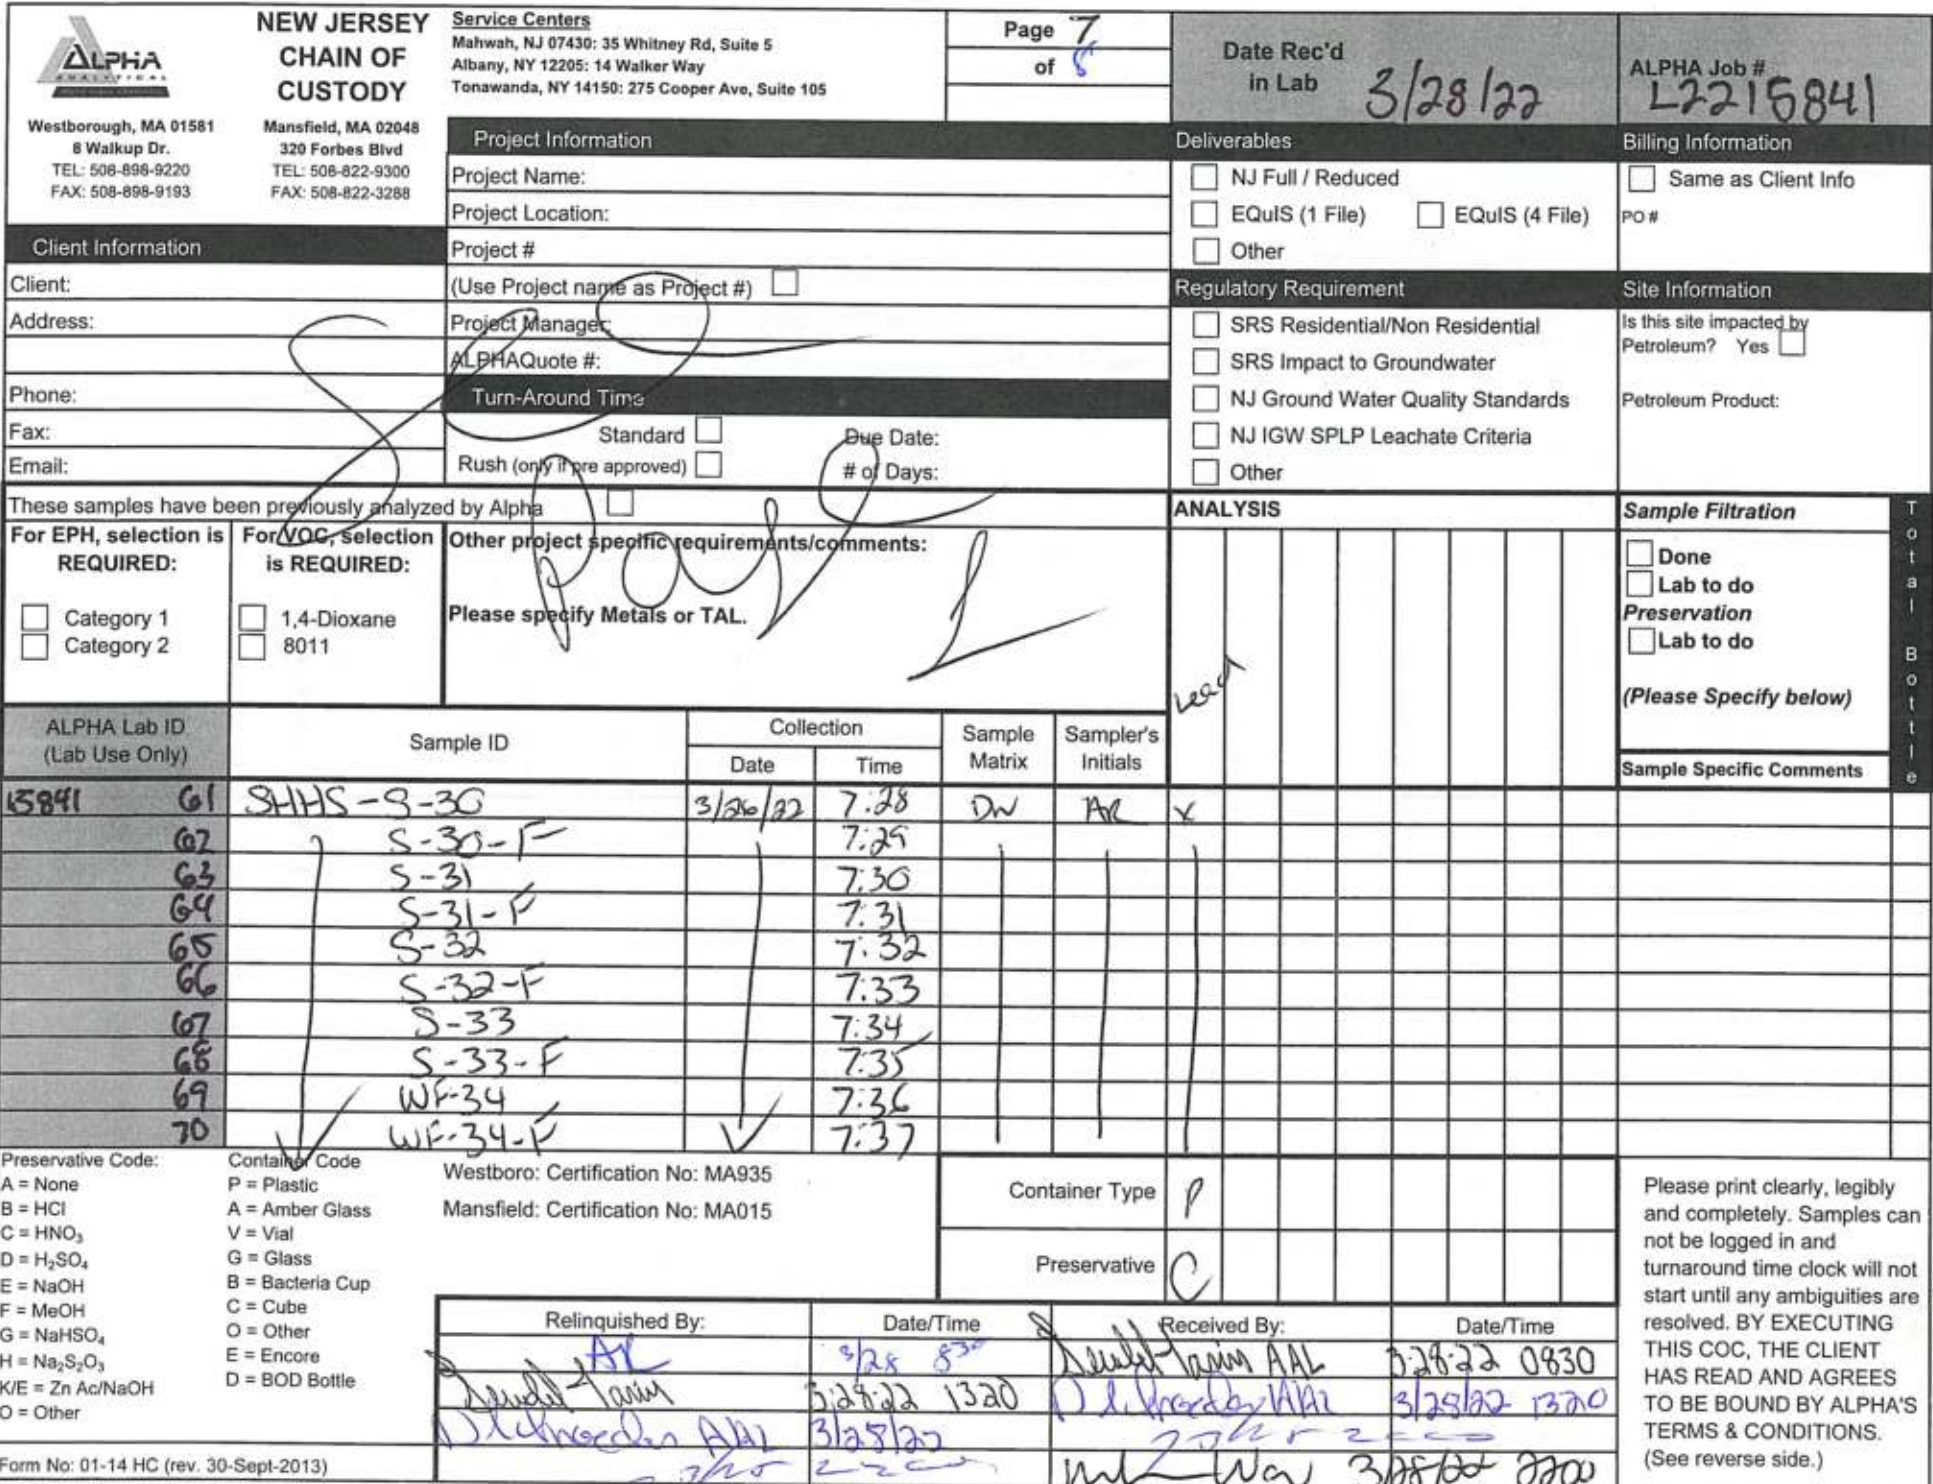 ALPHA
ANALYTICAL
Westborough, MA 01581
8 Walkup Dr.
TEL: 508-898-9220
FAX: 508-898-9193
NEW JERSEY
CHAIN OF
CUSTODY
Mansfield, MA 02048
320 Forbes Blvd
TEL: 508-822-9300
FAX: 508-822-3288
Service Centers
Mahwah, NJ 07430: 35 Whitney Rd, Suite 5
Albany, NY 12205: 14 Walker Way
Tonawanda, NY 14150: 275 Cooper Ave, Suite 105
Page 7
of 8
Date Rec'd
in Lab 3/28/22
ALPHA Job #
L2215841
Client Information
Client:
Address:
Phone:
Fax:
Email:
Project Information
Project Name:
Project Location:
Project #
(Use Project name as Project #)
Project Manager:
ALPHAQuote #:
Turn-Around Time
Standard Due Date:
Rush (only if pre approved) # of Days:
Deliverables
NJ Full / Reduced
EQuIS (1 File) EQuIS (4 File)
Other
Regulatory Requirement
SRS Residential/Non Residential
SRS Impact to Groundwater
NJ Ground Water Quality Standards
NJ IGW SPLP Leachate Criteria
Other
Billing Information
Same as Client Info
PO #
Site Information
Is this site impacted by
Petroleum? Yes
Petroleum Product:
These samples have been previously analyzed by Alpha
For EPH, selection is
REQUIRED:
Category 1
Category 2
For VOC, selection
is REQUIRED:
1,4-Dioxane
8011
Other project specific requirements/comments:
Please specify Metals or TAL.
See
Page 1
ANALYSIS
Lead
Sample Filtration
Done
Lab to do
Preservation
Lab to do
(Please Specify below)
Total Bottle
ALPHA Lab ID
(Lab Use Only)
Sample ID
Collection
Date Time
Sample
Matrix
Sampler's
Initials
Sample Specific Comments
15841 61 SHHS-S-30 3/26/22 7:28 DW AR X
62 S-30-F 7:29
63 S-31 7:30
64 S-31-F 7:31
65 S-32 7:32
66 S-32-F 7:33
67 S-33 7:34
68 S-33-F 7:35
69 WF-34 7:36
70 WF-34-F 7:37
Preservative Code:
A = None
B = HCl
C = HNO3
D = H2SO4
E = NaOH
F = MeOH
G = NaHSO4
H = Na2S2O3
K/E = Zn Ac/NaOH
O = Other
Container Code
P = Plastic
A = Amber Glass
V = Vial
G = Glass
B = Bacteria Cup
C = Cube
O = Other
E = Encore
D = BOD Bottle
Westboro: Certification No: MA935
Mansfield: Certification No: MA015
Container Type P
Preservative C
Relinquished By: Date/Time Received By: Date/Time
AR 3/28 830 AAL 3-28-22 0830
3-28-22 1320 AAL 3/28/22 1320
AAL 3/28/22
3/28/22 2200
Please print clearly, legibly
and completely. Samples can
not be logged in and
turnaround time clock will not
start until any ambiguities are
resolved. BY EXECUTING
THIS COC, THE CLIENT
HAS READ AND AGREES
TO BE BOUND BY ALPHA'S
TERMS & CONDITIONS.
(See reverse side.)
Form No: 01-14 HC (rev. 30-Sept-2013)